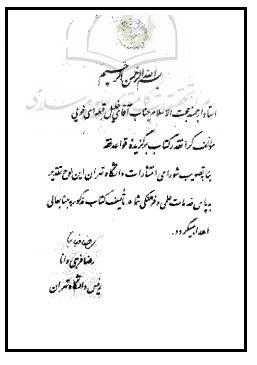 بسم الله الرحمن الرحیم
استاد ارجمند حجت الاسلام جناب آقای خلیل قبله‌ای خوئی
مؤلف گرانقدر کتاب برگزیدهٔ قواعد فقه
بنا بتصویب شورای انتشارات دانشگاه تهران این لوح تقدیر
به پاس خدمات علمی و فرهنگی شما در تألیف کتاب مذکور به جنابعالی
اهدا میگردد.
رضا فرجی دانا
رئیس دانشگاه تهران